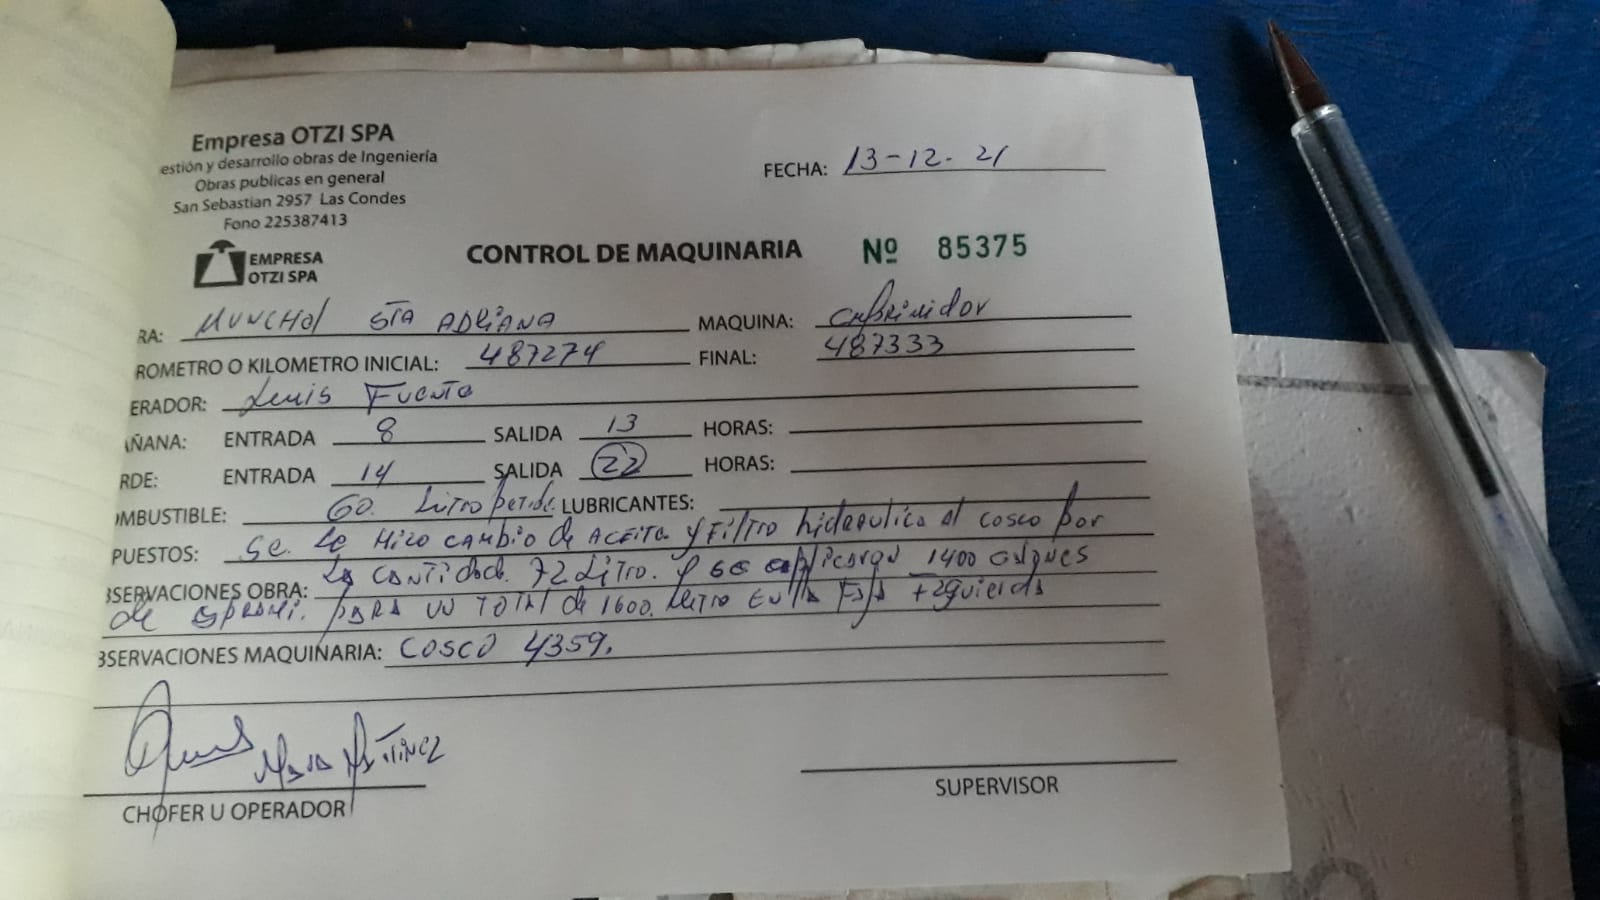 Empresa OTZI SPA
estión y desarrollo obras de Ingeniería
Obras publicas en general
San Sebastian 2957 Las Condes
Fono 225387413
FECHA: 13-12-21
EMPRESA
OTZI SPA
CONTROL DE MAQUINARIA Nº 85375
RA: MUNCHEl STA ADRIANA MAQUINA:
ROMETRO O KILOMETRO INICIAL: 487274 FINAL: 487333
ERADOR: Luis Fuente
AÑANA: ENTRADA 8 SALIDA 13 HORAS:
RDE: ENTRADA 14 SALIDA 22 HORAS:
OMBUSTIBLE: 60. Litro LUBRICANTES:
PUESTOS: Se le Hizo CAMBIO de ACEITE y FILTRO hidraulico al COSCO por
BSERVACIONES OBRA: La CANTIDAD. 72 Litro. y se aplicaron 1400
de PARA UN TOTAl de 1600. Metro EN la FAJA Izquierda
BSERVACIONES MAQUINARIA: COSCO 4359.
CHOFER U OPERADOR
SUPERVISOR